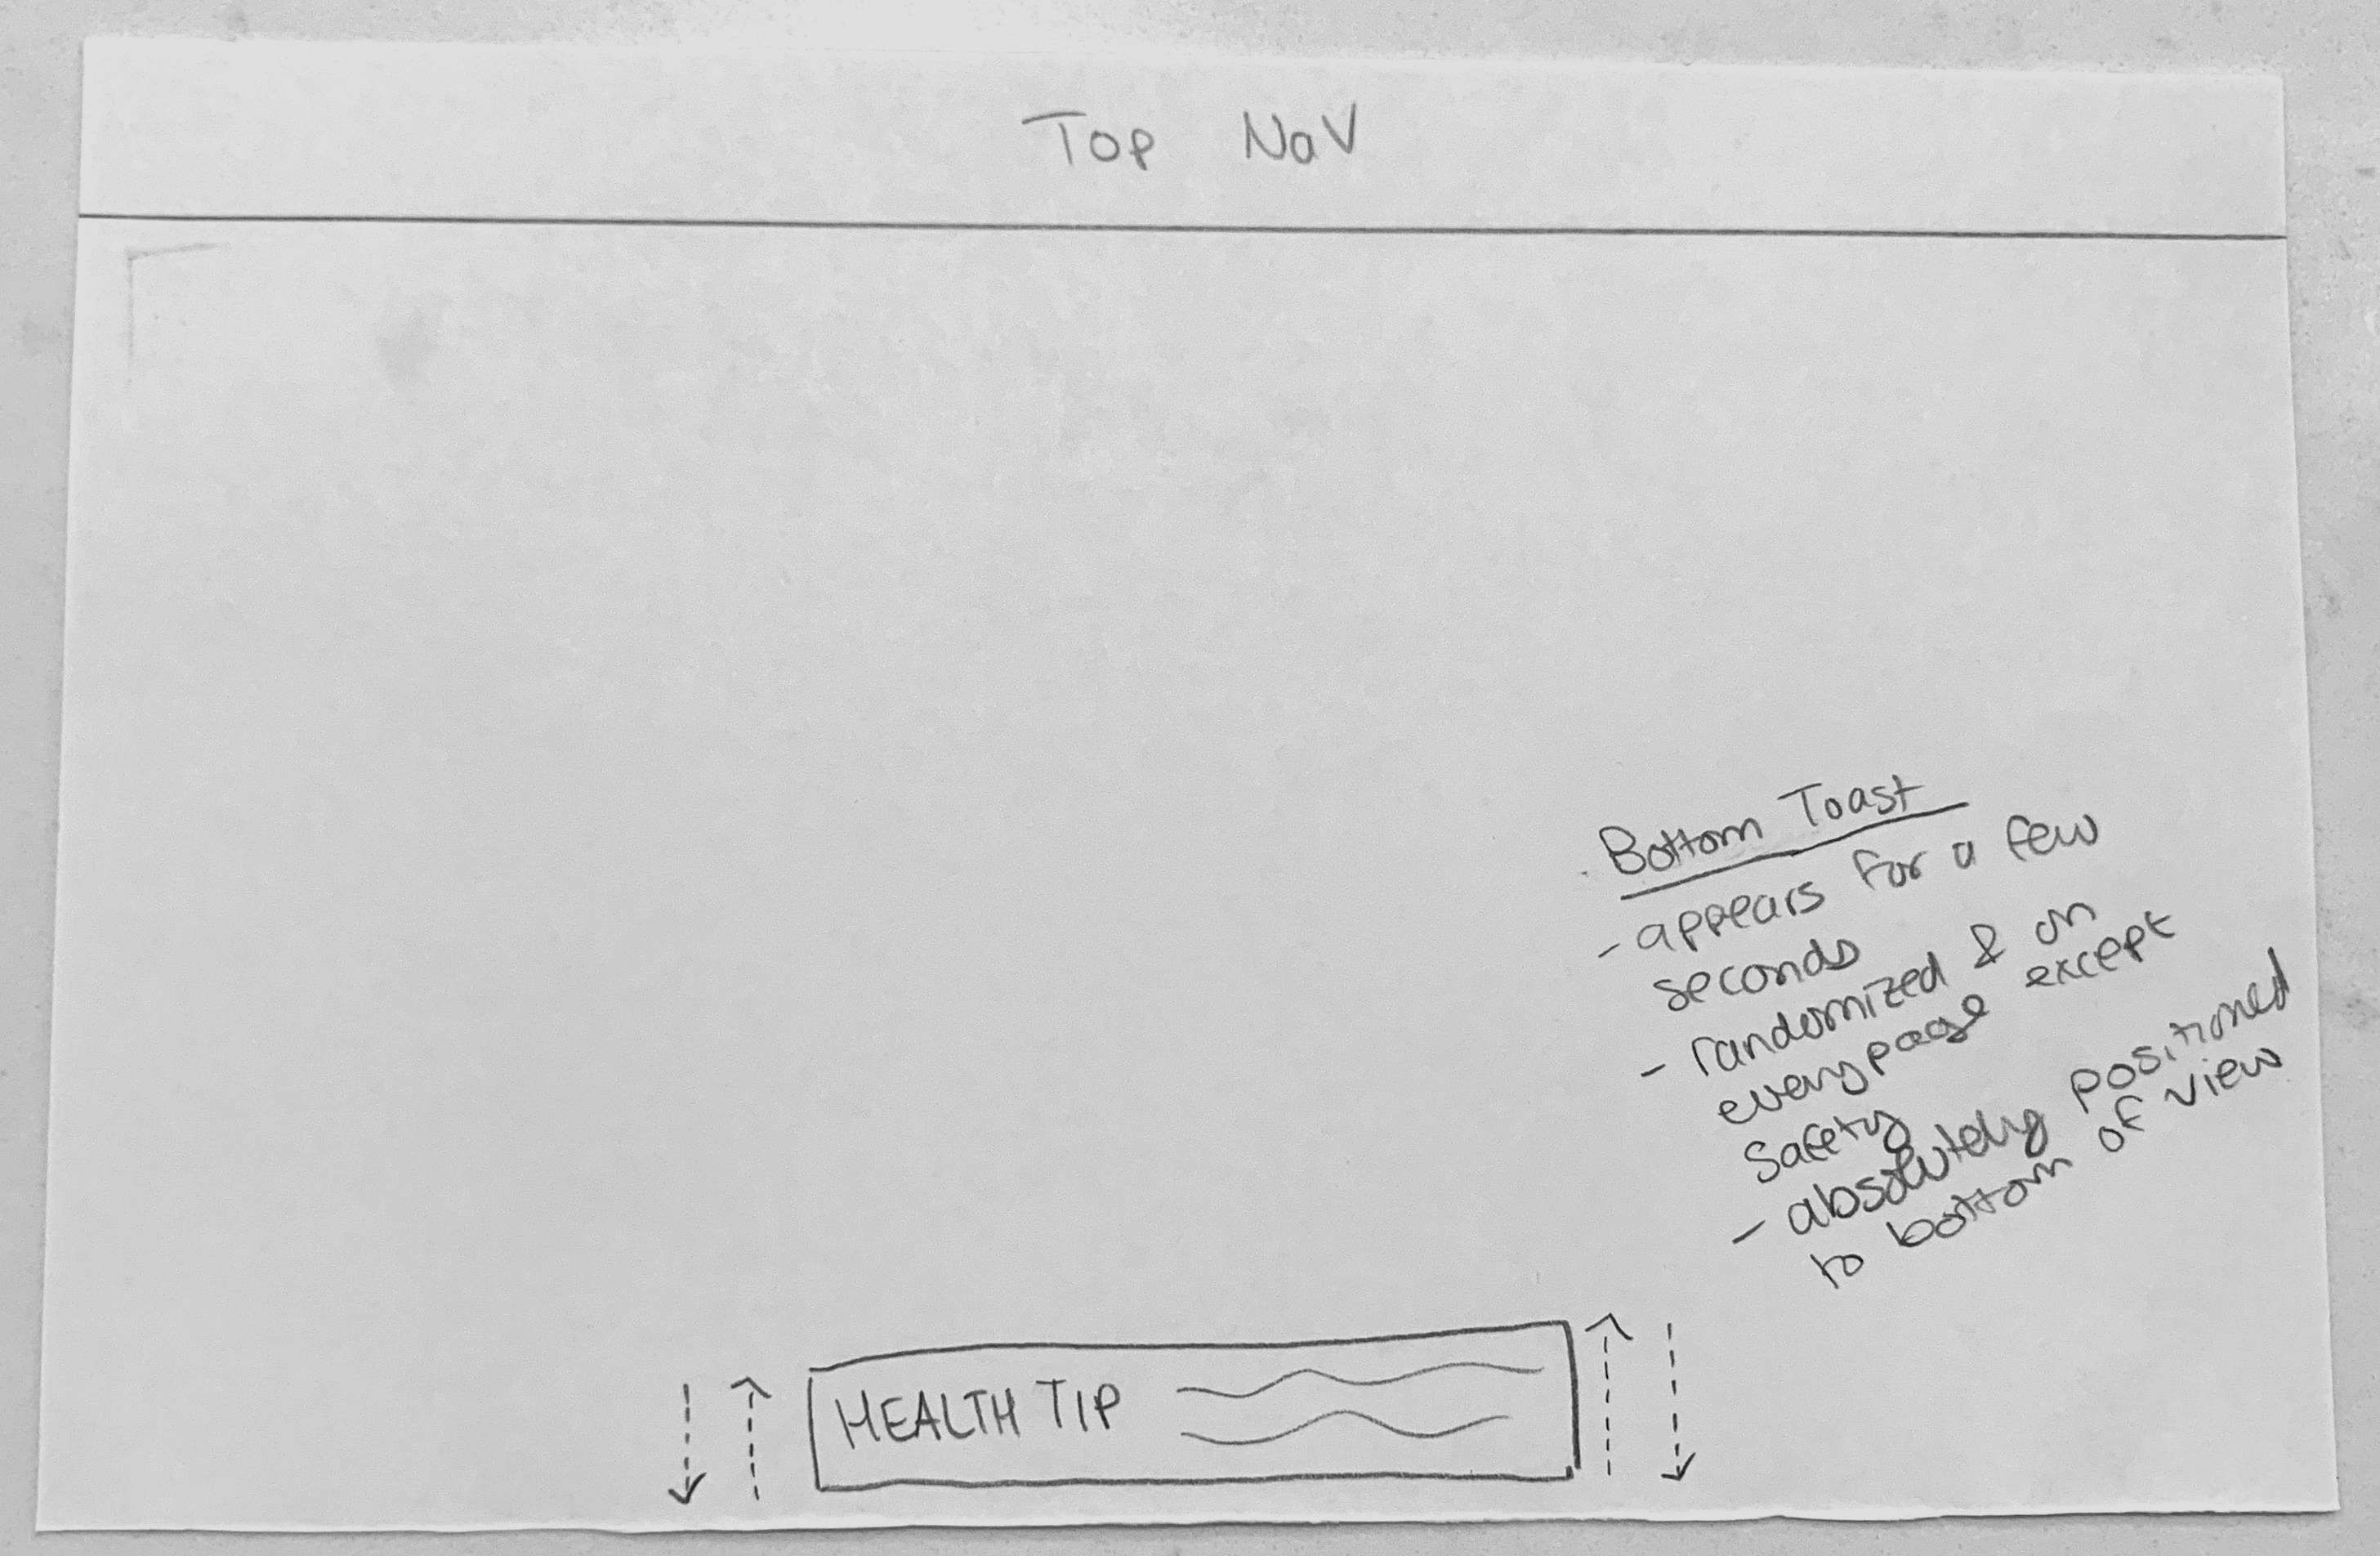 Top NaV
Bottom Toast
- appears for a few
seconds
- randomized & on
every page except
safety
- absolutely positioned
to bottom of view
HEALTH TIP